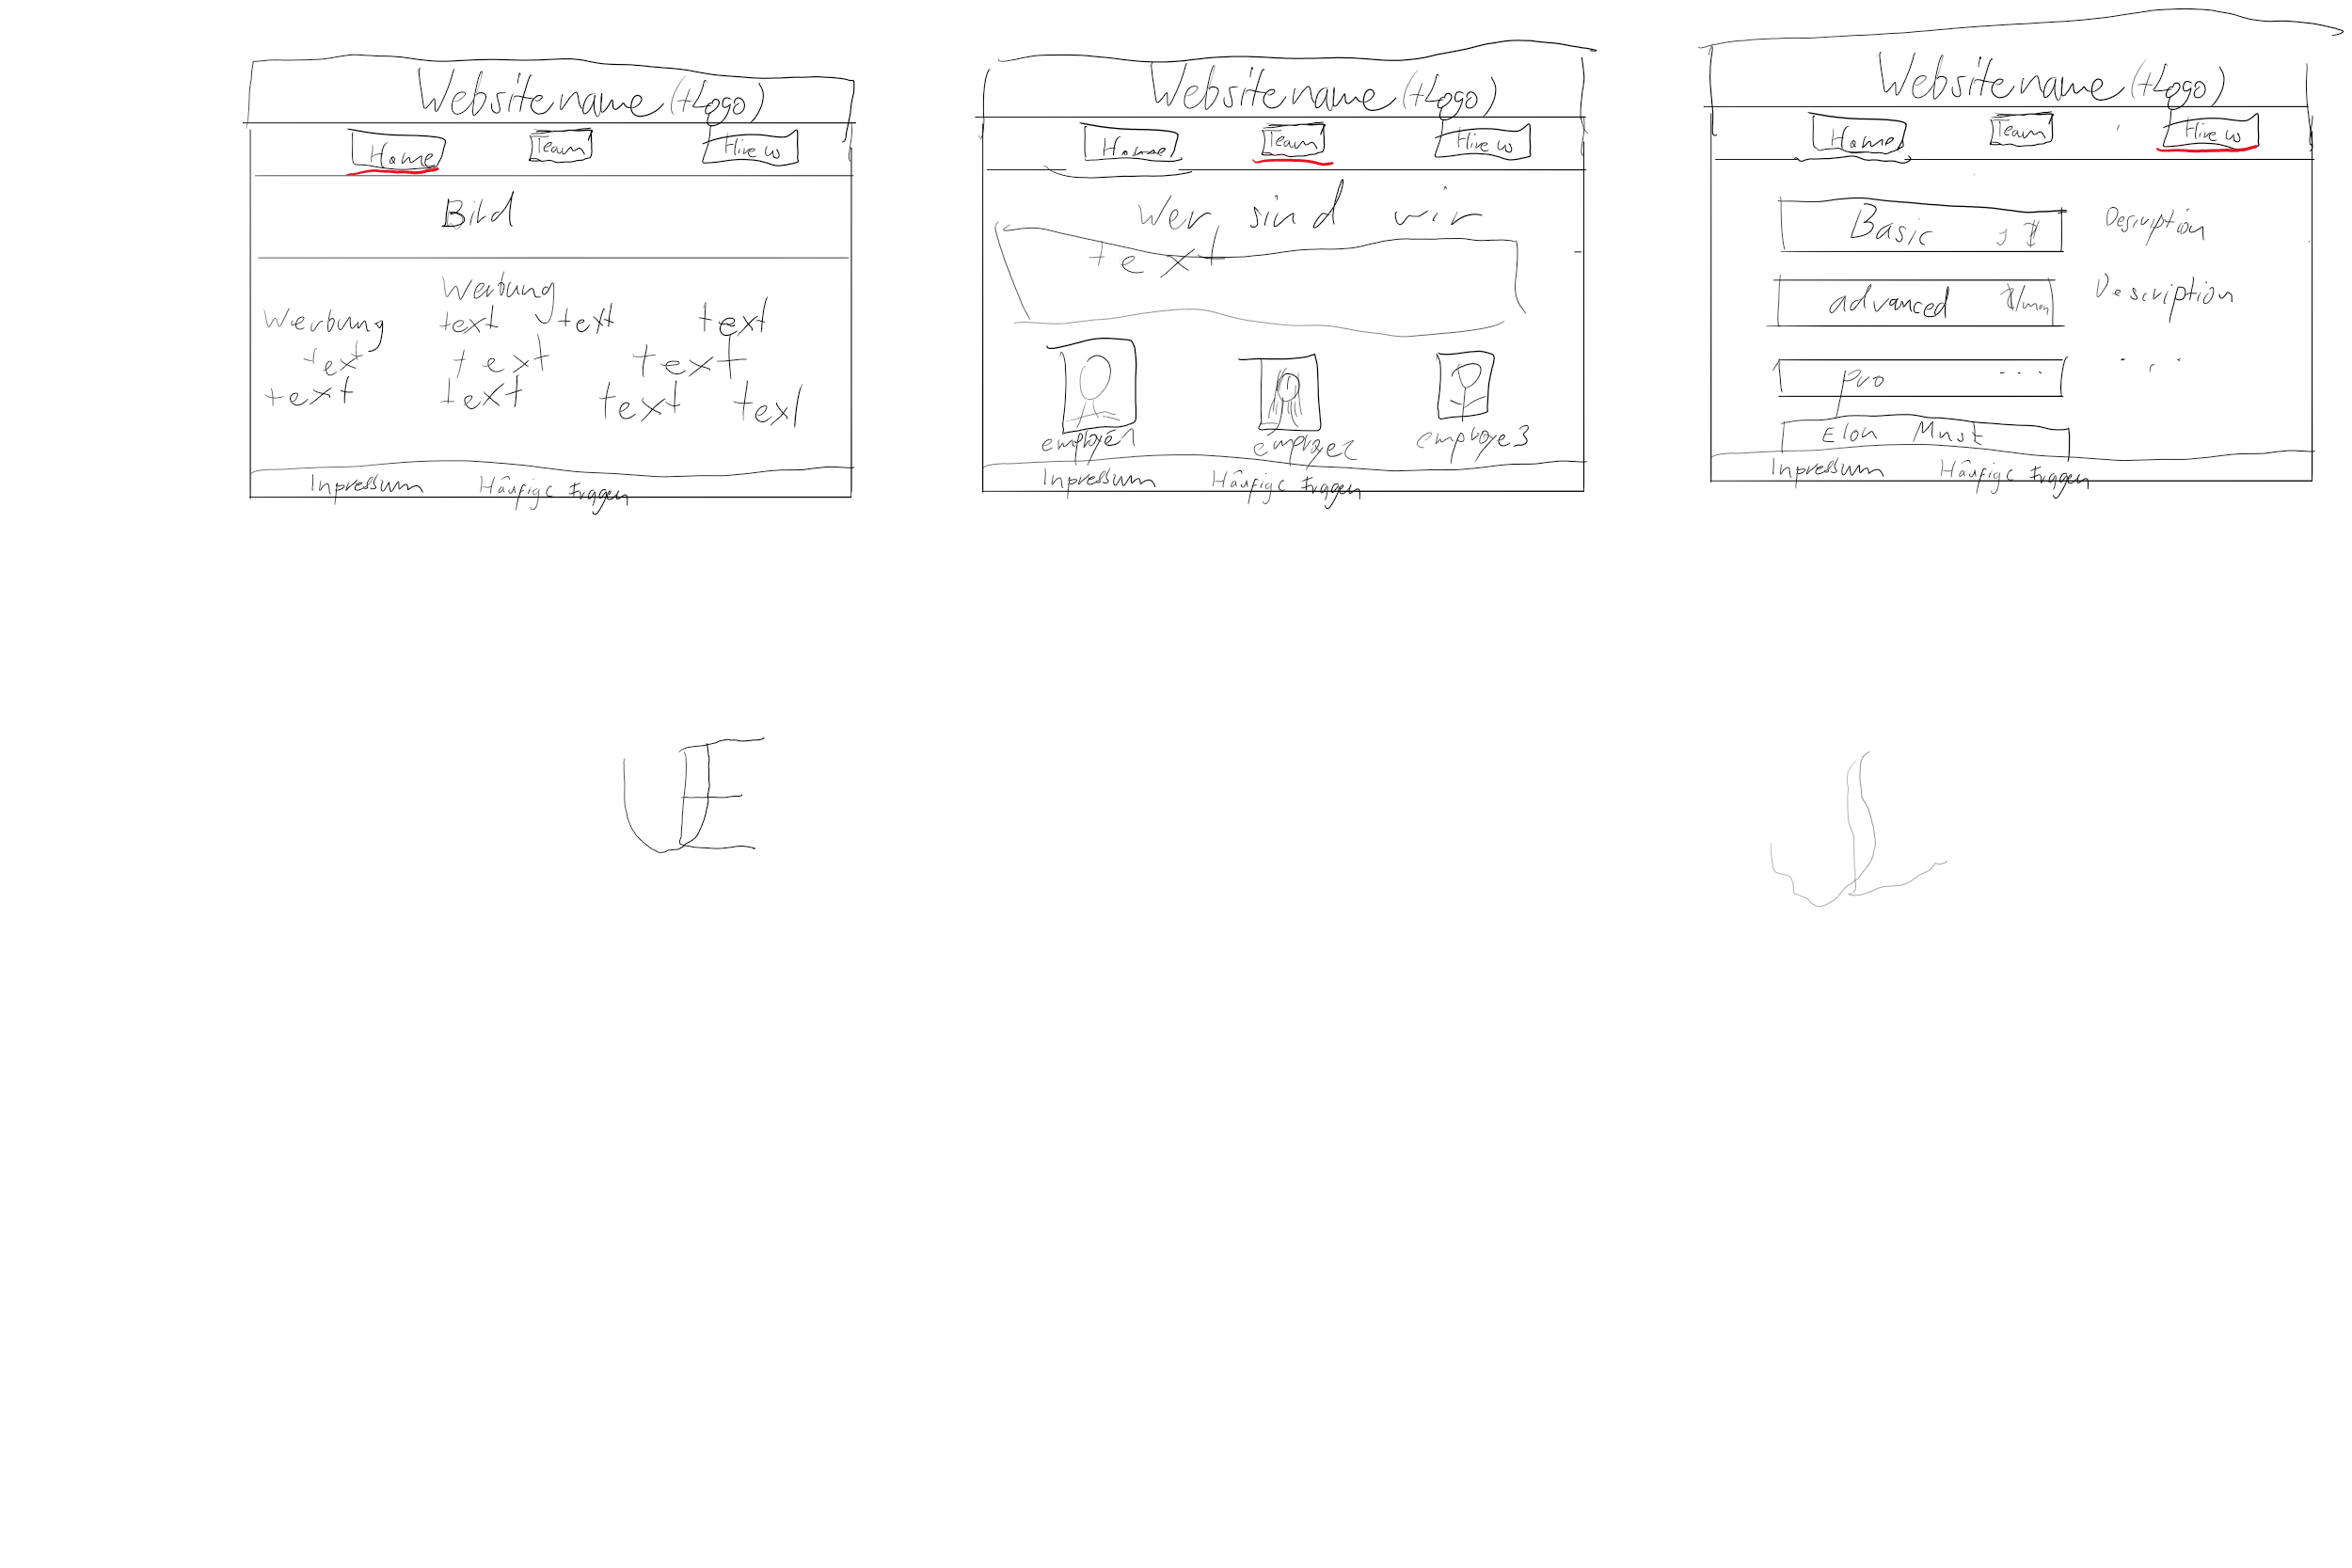 Websitename (+Logo)
Home Team Hire us
Bild
Werbung
Werbung text text text
text text text
text text text text
Inpressum Häufige Fragen
Websitename (+Logo)
Home Team Hire us
Wer sind wir
text
employe1 employe2 employe3
Inpressum Häufige Fragen
Websitename (+Logo)
Home Team Hire us
Basic $ Description
advanced $/mon Description
pro ... ...
Elon Musk
Inpressum Häufige Fragen
UE